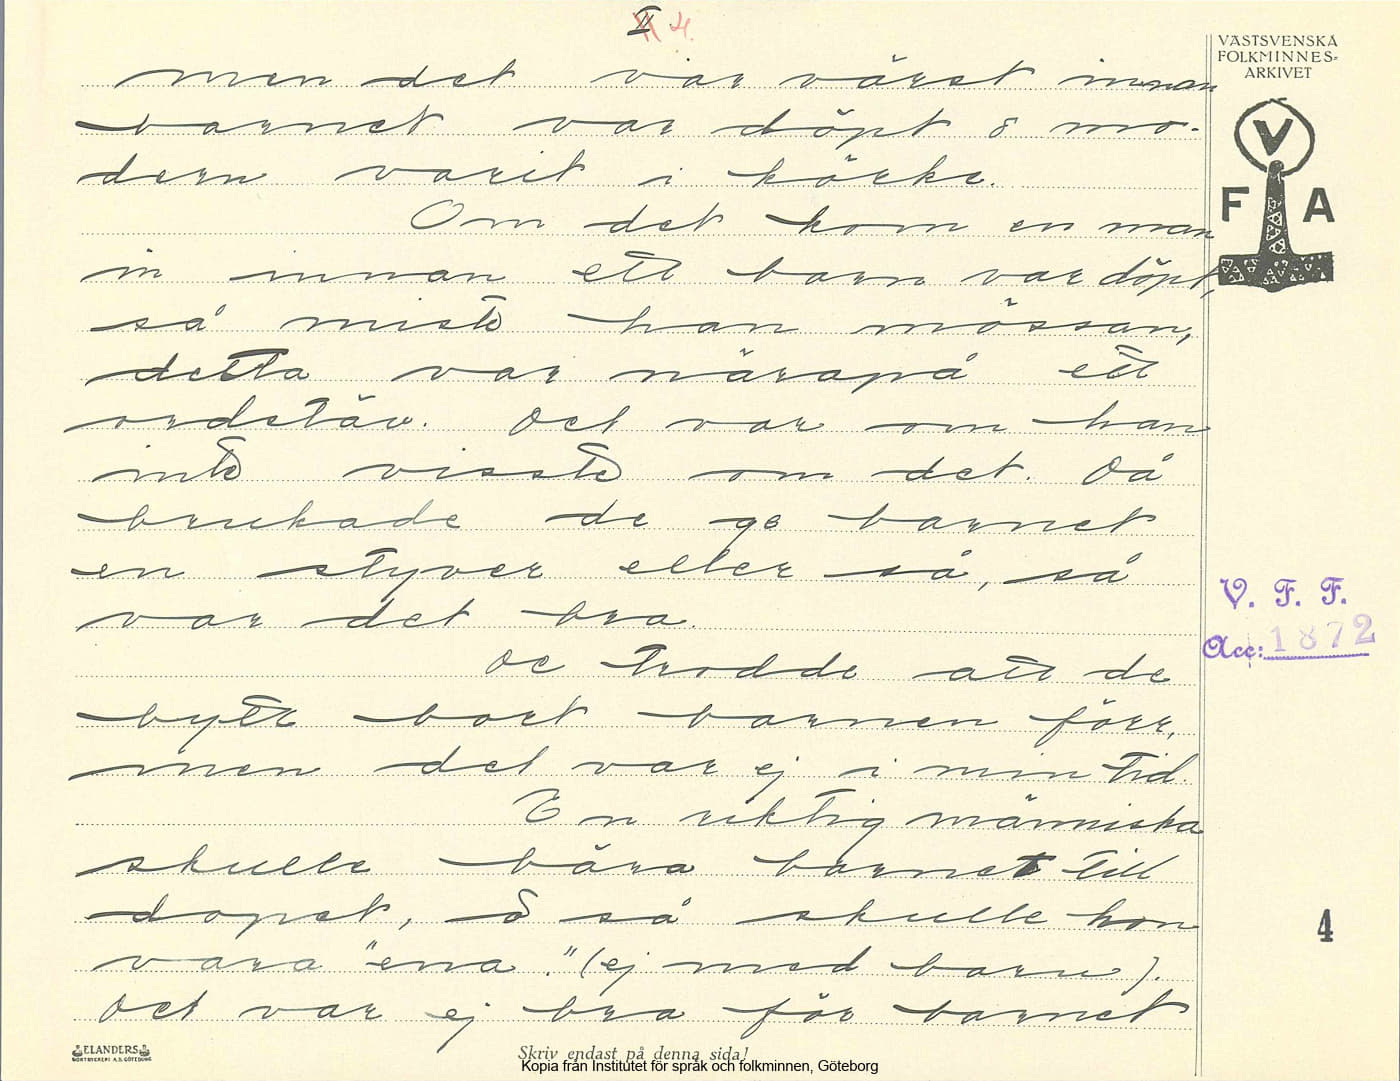 II 4.
VÄSTSVENSKA
FOLKMINNES-
ARKIVET
V
F A
men det var värst innan
barnet var döpt & mo-
dern varit i körka.
Om det kom en man
in innan ett barn var döpt,
så miste han mössan,
detta var närapå ett
ordstäv. Det var om han
inte visste om det. Då
brukade de ge barnet
en styver eller så, så
var det bra.
De trodde att de
bytte bort barnen förr,
men det var ej i min tid.
En riktig människa
skulle bära barnet till
dopet, & så skulle hon
vara "ena." (ej med barn).
Det var ej bra för barnet
V. F. F.
Acc: 1872
4
ELANDERS
BOKTRYCKERI A.B. GÖTEBORG
Skriv endast på denna sida!
Kopia från Institutet för språk och folkminnen, Göteborg